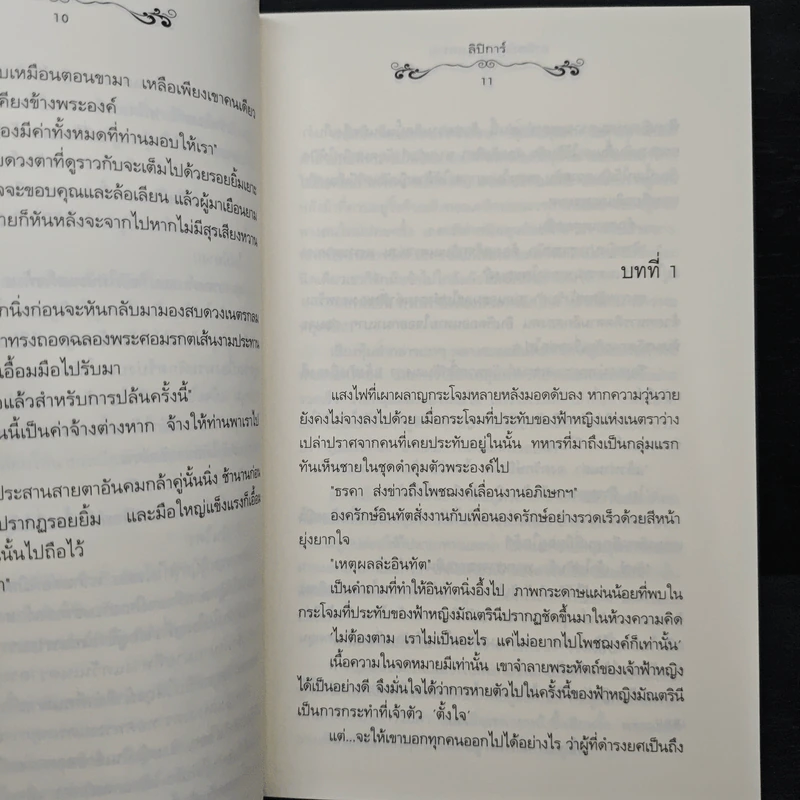 10
บเหมือนตอนขามา เหลือเพียงเขาคนเดียว
คียงข้างพระองค์
องมีค่าทั้งหมดที่ท่านมอบให้เรา"
ยดวงตาที่ดูราวกับจะเต็มไปด้วยรอยยิ้มเยาะ
จจะขอบคุณและล้อเลียน แล้วผู้มาเยือนยาม
ายก็หันหลังจะจากไปหากไม่มีสุรเสียงหวาน
กนิ่งก่อนจะหันกลับมามองสบดวงเนตรกลม
าทรงถอดฉลองพระศอมรกตเส้นงามประทาน
เอื้อมมือไปรับมา
อแล้วสำหรับการปล้นครั้งนี้"
นนี้เป็นค่าจ้างต่างหาก จ้างให้ท่านพาเราไป
ประสานสายตาอันคมกล้าคู่นั้นนิ่ง ช้านานก่อน
ปรากฏรอยยิ้ม และมือใหญ่แข็งแรงก็เอื้อม
นั้นไปถือไว้
า"
ลิปิการ์
11
บทที่ 1
แสงไฟที่เผาผลาญกระโจมหลายหลังมอดดับลง หากความวุ่นวาย
ยังคงไม่จางลงไปด้วย เมื่อกระโจมที่ประทับของฟ้าหญิงแห่งเนตราว่าง
เปล่าปราศจากคนที่เคยประทับอยู่ในนั้น ทหารที่มาถึงเป็นกลุ่มแรก
ทันเห็นชายในชุดดำคุมตัวพระองค์ไป
"ธรคา ส่งข่าวถึงโพชฌงค์เลื่อนงานอภิเษกฯ"
องครักษ์อินทัตสั่งงานกับเพื่อนองครักษ์อย่างรวดเร็วด้วยสีหน้า
ยุ่งยากใจ
"เหตุผลล่ะอินทัต"
เป็นคำถามที่ทำให้อินทัตนิ่งอึ้งไป ภาพกระดาษแผ่นน้อยที่พบใน
กระโจมที่ประทับของฟ้าหญิงมัณตรินีปรากฏชัดขึ้นมาในห้วงความคิด
'ไม่ต้องตาม เราไม่เป็นอะไร แค่ไม่อยากไปโพชฌงค์ก็เท่านั้น'
เนื้อความในจดหมายมีเท่านั้น เขาจำลายพระหัตถ์ของเจ้าฟ้าหญิง
ได้เป็นอย่างดี จึงมั่นใจได้ว่าการหายตัวไปในครั้งนี้ของฟ้าหญิงมัณตรินี
เป็นการกระทำที่เจ้าตัว 'ตั้งใจ'
แต่...จะให้เขาบอกทุกคนออกไปได้อย่างไร ว่าผู้ที่ดำรงยศเป็นถึง